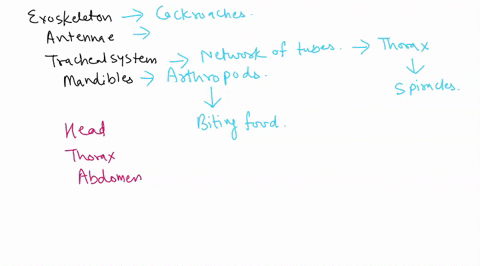 Exoskeleton → Cockroaches.
Antennae →
Tracheal system → Network of tubes. → Thorax
Mandibles → Arthropods.
Spiracles.
Biting food.
Head
Thorax
Abdomen